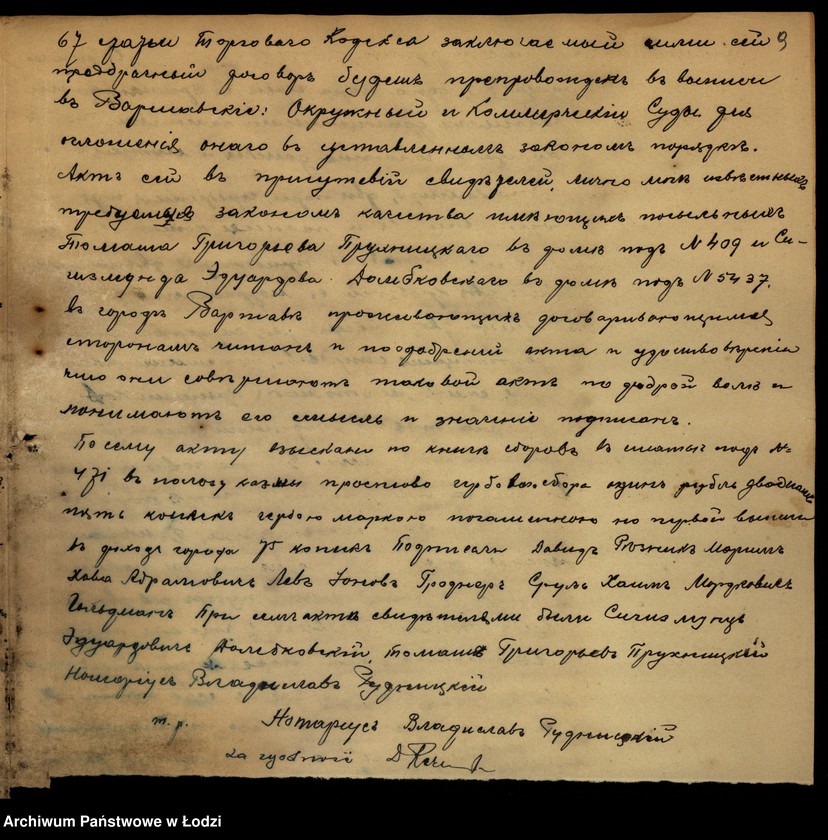 67 статьи Торговаго Кодекса заключаемый ими сей 9
предбрачный договоръ будетъ препровожденъ въ выписи
въ Варшавскіе: Окружный и Коммерческій Суды для
оглашенія онаго въ установленномъ закономъ порядкѣ.
Актъ сей въ присутствіи свидѣтелей, лично мнѣ извѣстныхъ
требуемыя закономъ качества имѣющихъ посыльныхъ
Томаша Григорьева Прухницкаго въ домѣ подъ N 409 и Си-
гизмунда Эдуардова Домбковскаго въ домѣ подъ N 5437.
въ городѣ Варшавѣ проживающихъ договаривающимся
сторонамъ читанъ и по одобреніи акта и удостовѣреніи
что они совершаютъ таковой актъ по доброй волѣ и
понимаютъ его смыслъ и значеніе подписанъ.
По сему акту взыскано по книгѣ сборовъ въ статьѣ подъ N
471 въ пользу казны простого гербоваго сбора одинъ рубль двадцать
пять копѣекъ гербовою маркою погашенною на первой выписи
въ доходъ города 75 копѣкъ Подписали Давидъ Рѣзникъ Маріимъ
Хава Абрамовичъ Левъ Іоновъ Гроднеръ Сруль Хаимъ Мордковичъ
Гольдманъ При семъ актѣ свидѣтелями были Сигизмундъ
Эдуардовичъ Домбковскій, Томашъ Григорьевъ Прухницкій
Нотаріусъ Владиславъ Рудницкій
м. р. Нотаріусъ Владиславъ Рудницкій